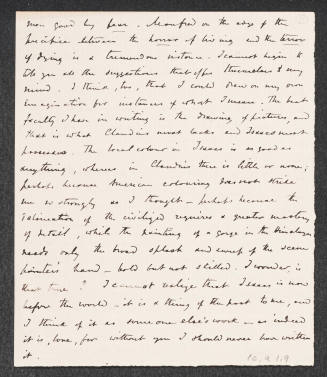 man good by fear. Manfred on the edge of the
precipice between the horror of living and the terror
of dying is a tremendous instance. I cannot begin to
tell you all the suggestions that offer themselves to my
mind. I think, too, that I could draw on my own
imagination for instances of what I mean. The best
faculty I have in writing is the drawing of pictures, and
that is what Claudius most lacks and Isaacs most
possesses. The local colour in Isaacs is as good as
anything, whereas in Claudius there is little or none;
perhaps because American colouring does not strike
me so strongly as I thought – perhaps because the
delineation of the civilized requires a greater mastery
of detail, while the painting of a gorge in the Himalayas
needs only the broad splash and sweep of the scene
painter's hand – bold but not skilled. I wonder, is
that true? I cannot realize that Isaacs is now
before the world – it is a thing of the past to me, and
I think of it as some one else's work – as indeed
it is, love, for without you I should never have written
it.